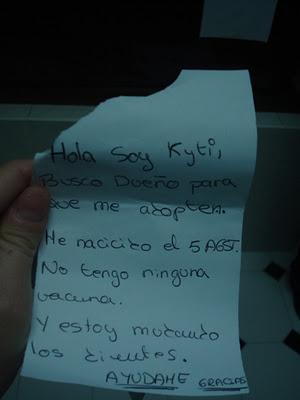 Hola Soy Kyti,
Busco Dueño para
que me adopten.
He nacicito el 5 AGST.
No tengo ninguna
vacuna.
Y estoy mutando
los dientes.
AYUDAME GRACIAS